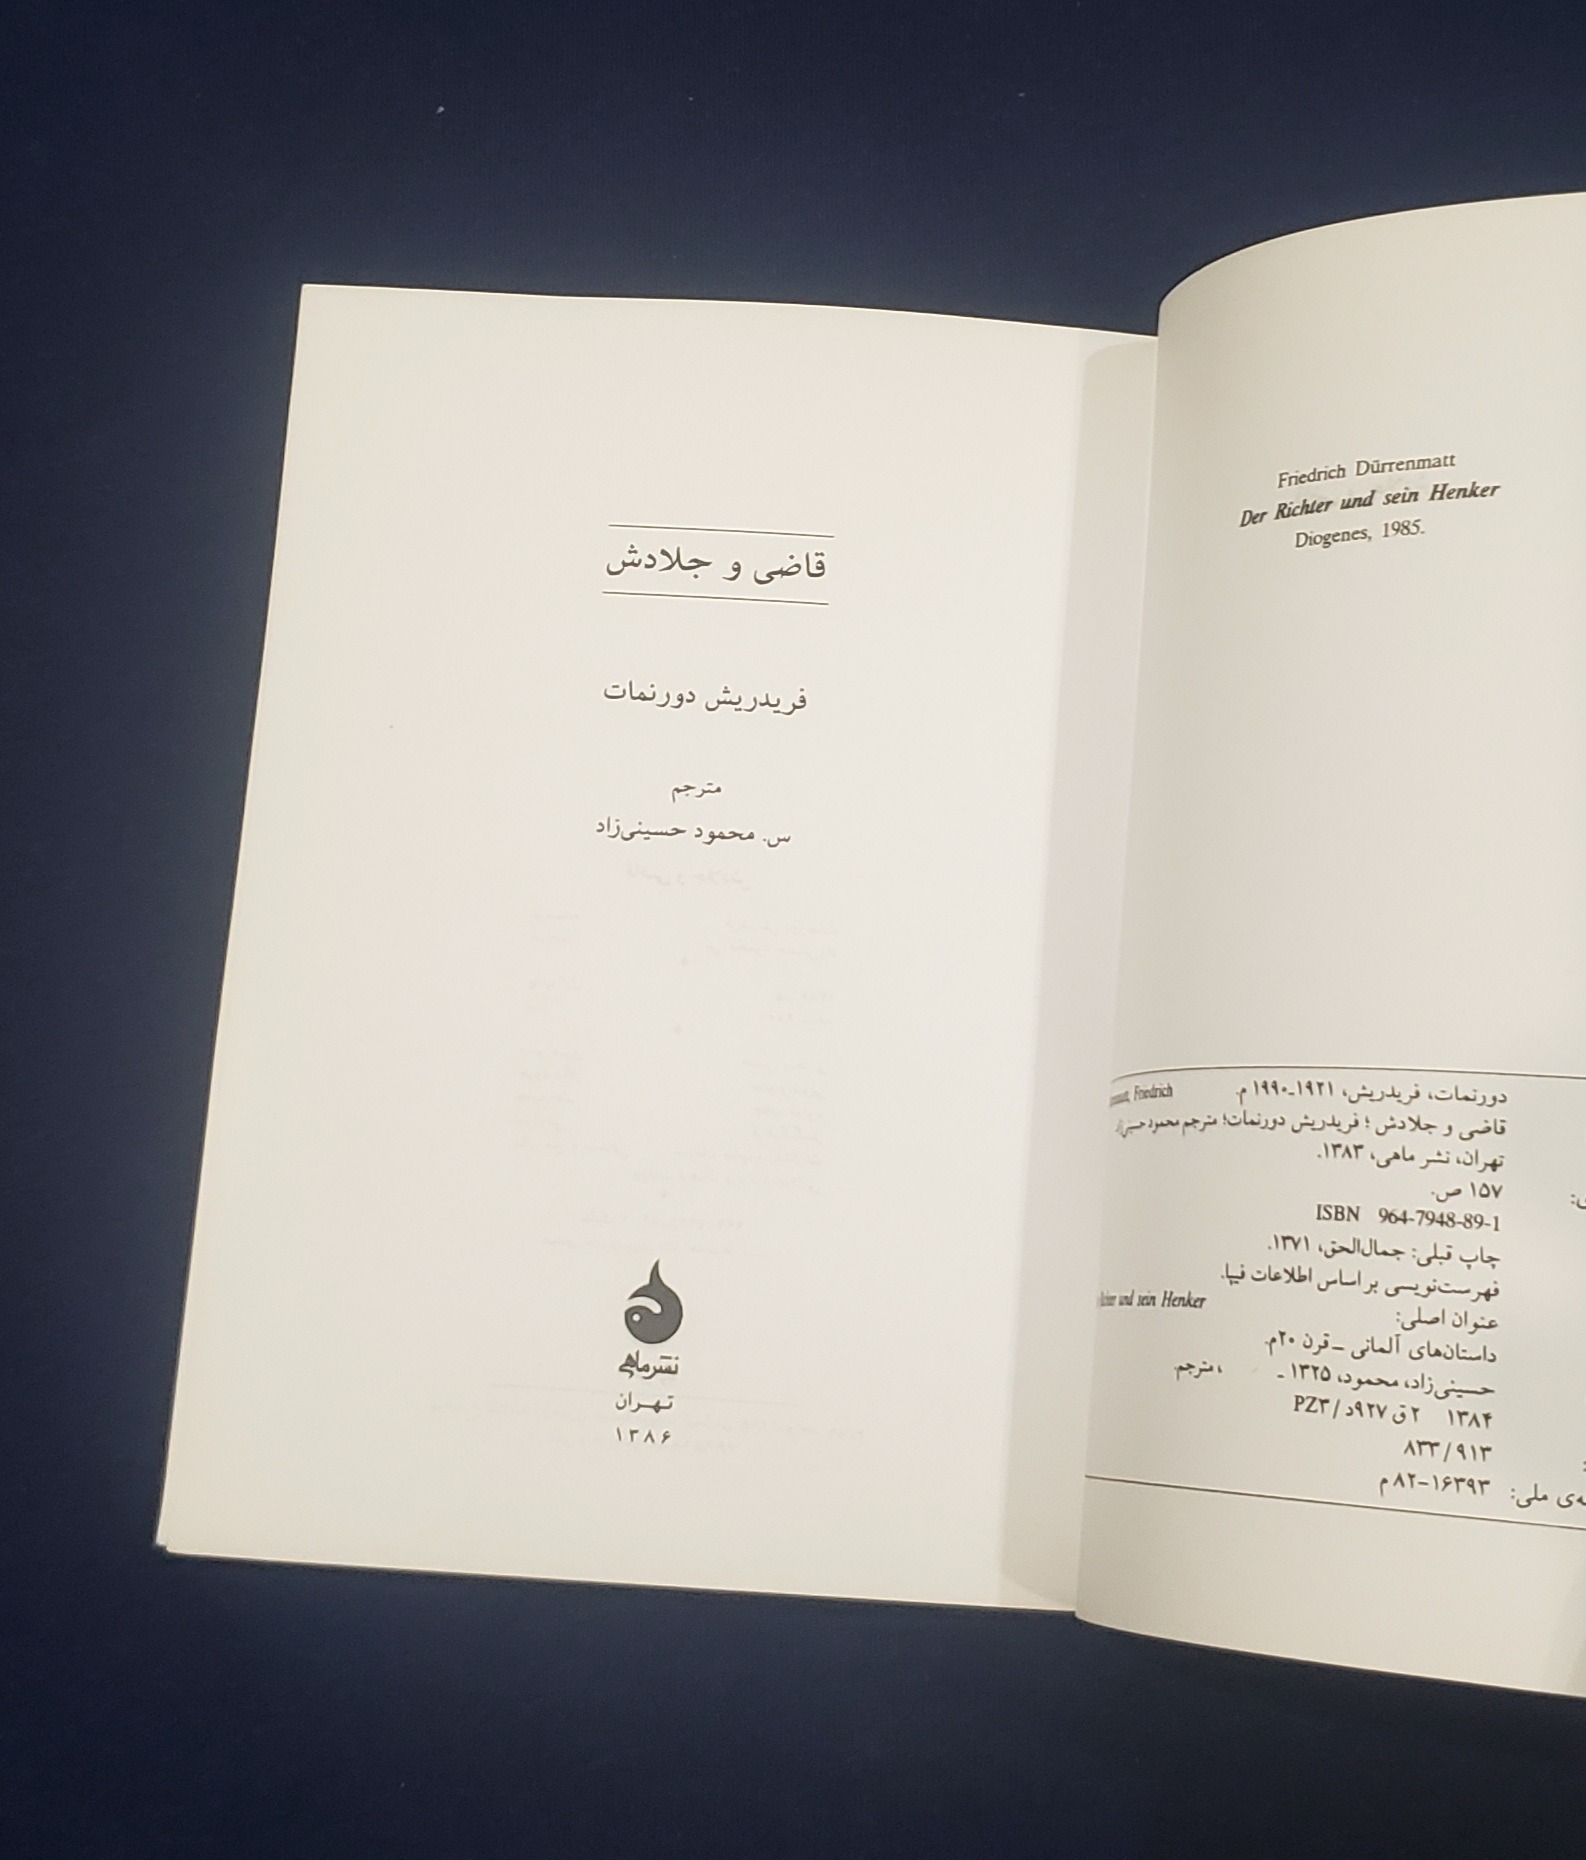 قاضی و جلادش
فریدریش دورنمات
مترجم
س. محمود حسینی‌زاد
نشرماهی
تهران
۱۳۸۶
Friedrich Dürrenmatt
Der Richter und sein Henker
Diogenes, 1985.
دورنمات، فریدریش، ۱۹۲۱-۱۹۹۰ م. Friedrich
قاضی و جلادش ؛ فریدریش دورنمات؛ مترجم محمود حسینی‌زاد
تهران، نشر ماهی، ۱۳۸۳.
۱۵۷ ص.
ISBN 964-7948-89-1
چاپ قبلی: جمال‌الحق، ۱۳۷۱.
فهرست‌نویسی بر اساس اطلاعات فیپا.
عنوان اصلی: und sein Henker
داستان‌های آلمانی -قرن ۲۰م.
حسینی‌زاد، محمود، ۱۳۲۵ - ، مترجم.
۱۳۸۴ ۲ق۹۲۷د/PZ۳
۸۳۳/۹۱۳
ملی: ۸۲-۱۶۳۹۳م